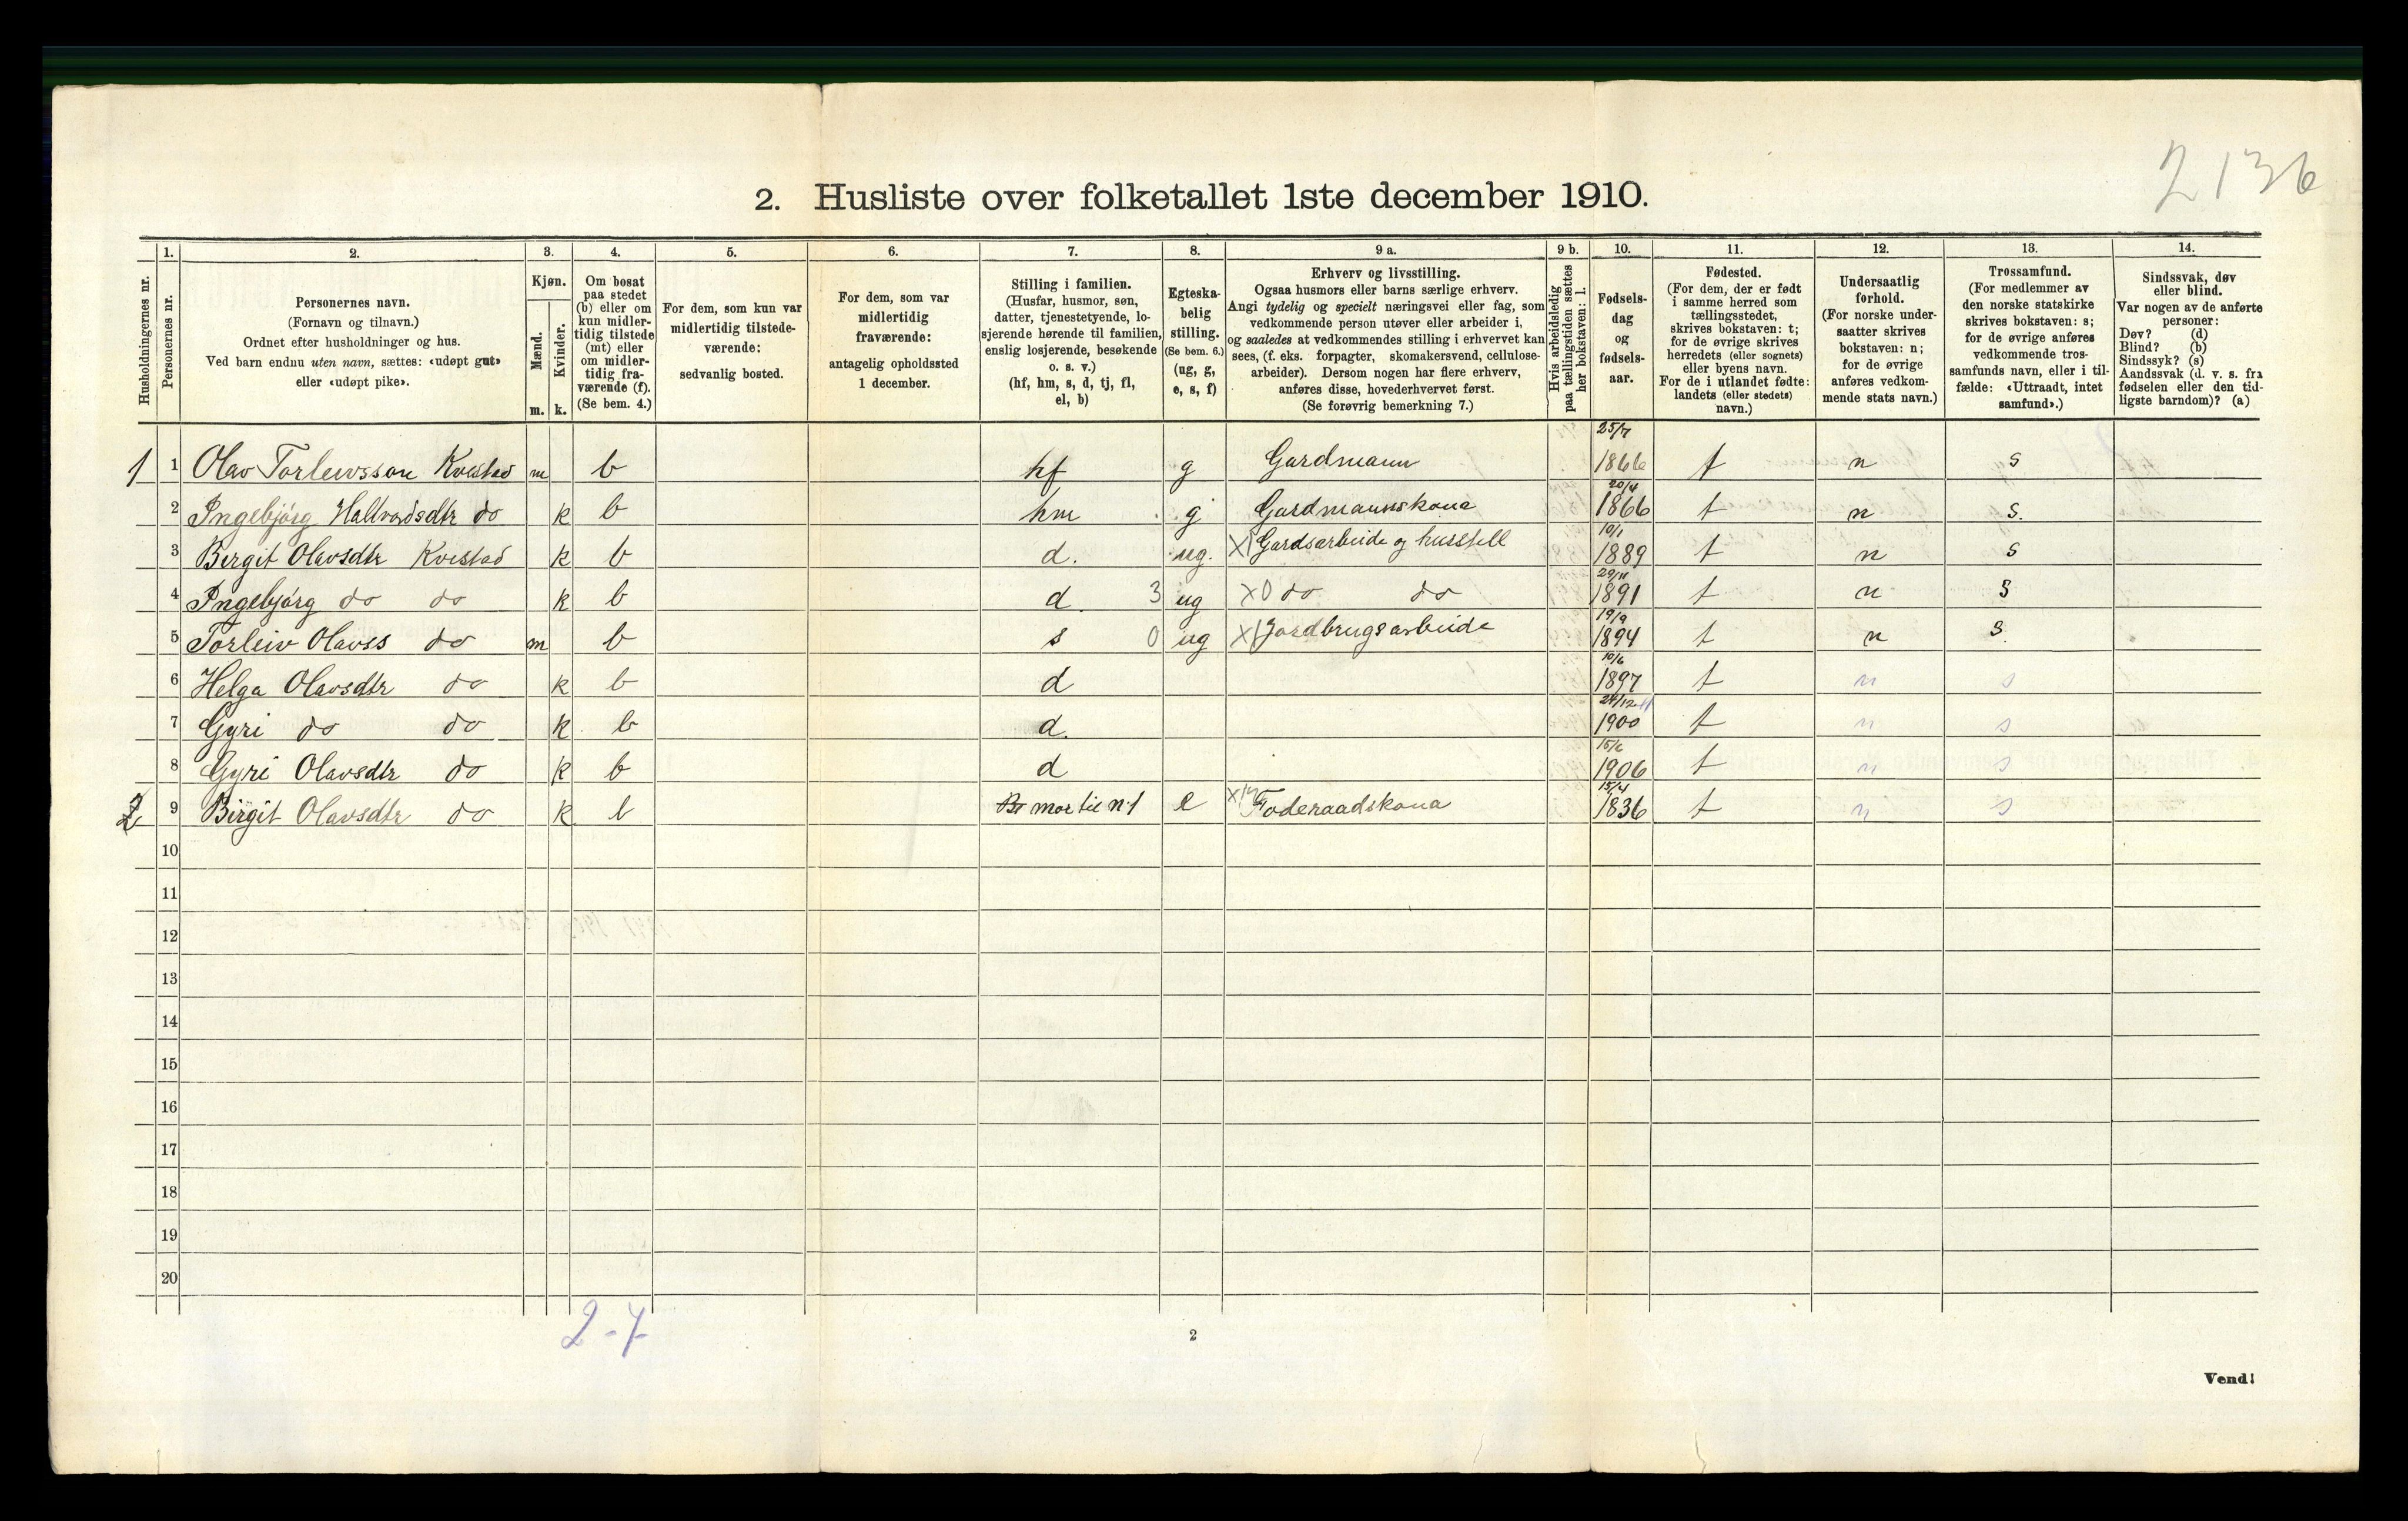 2136
2. Husliste over folketallet 1ste december 1910.
Husholdningernes nr.
1.
Personernes nr.
2.
Personernes navn.
(Fornavn og tilnavn.)
Ordnet efter husholdninger og hus.
Ved barn endnu uten navn, sættes: «udøpt gut»
eller «udøpt pike».
3.
Kjøn.
Mænd.
Kvinder.
m. k.
4.
Om bosat
paa stedet
(b) eller om
kun midler-
tidig tilstede
(mt) eller
om midler-
tidig fra-
værende (f).
(Se bem. 4.)
5.
For dem, som kun var
midlertidig tilstede-
værende:
sedvanlig bosted.
6.
For dem, som var
midlertidig
fraværende:
antagelig opholdssted
1 december.
7.
Stilling i familien.
(Husfar, husmor, søn,
datter, tjenestetyende, lo-
sjerende hørende til familien,
enslig losjerende, besøkende
o. s. v.)
(hf, hm, s, d, tj, fl,
el, b)
8.
Egteska-
belig
stilling.
(Se bem. 6.)
(ug, g,
e, s, f)
9 a.
Erhverv og livsstilling.
Ogsaa husmors eller barns særlige erhverv.
Angi tydelig og specielt næringsvei eller fag, som
vedkommende person utøver eller arbeider i,
og saaledes at vedkommendes stilling i erhvervet kan
sees, (f. eks. forpagter, skomakersvend, cellulose-
arbeider). Dersom nogen har flere erhverv,
anføres disse, hovederhvervet først.
(Se forøvrig bemerkning 7.)
9 b.
Hvis arbeidsledig
paa tællingstiden sættes
her bokstaven: l.
10.
Fødsels-
dag
og
fødsels-
aar.
11.
Fødested.
(For dem, der er født
i samme herred som
tællingsstedet,
skrives bokstaven: t;
for de øvrige skrives
herredets (eller sognets)
eller byens navn.
For de i utlandet fødte:
landets (eller stedets)
navn.)
12.
Undersaatlig
forhold.
(For norske under-
saatter skrives
bokstaven: n;
for de øvrige
anføres vedkom-
mende stats navn.)
13.
Trossamfund.
(For medlemmer av
den norske statskirke
skrives bokstaven: s;
for de øvrige anføres
vedkommende tros-
samfunds navn, eller i til-
fælde: «Uttraadt, intet
samfund».)
14.
Sindssvak, døv
eller blind.
Var nogen av de anførte
personer:
Døv? (d)
Blind? (b)
Sindssyk? (s)
Aandssvak (d. v. s. fra
fødselen eller den tid-
ligste barndom)? (a)
1 1 Olav Torleivsson Kvestad m b hf g Gardmann 25/7 1866 t n s
2 Ingebjörg Hallvordsdtr do k b hm g Gardmannskona 20/4 1866 t n s.
3 Birgit Olavsdtr Kvestad k b d. ug. X1 Gardsarbeide og husstell 10/1 1889 t n s
4 Ingebjörg do do k b d. 3 ug X0 do do 29/11 1891 t n s
5 Torleiv Olavss do m b s 0 ug X1 Jordbrugsarbeide 19/9 1894 t n s.
6 Helga Olavsdtr do k b d 10/6 1897 t n s
7 Gyri do do k b d. 24/12 1900 t n s
8 Gyri Olavsdtr do k b d 15/6 1906 t n s
2 9 Birgit Olavsdtr do k b mor til n 1 e Foderaadskona 15/4 1836 t n s
10
11
12
13
14
15
16
17
18
19
20
2-7
2
Vend!